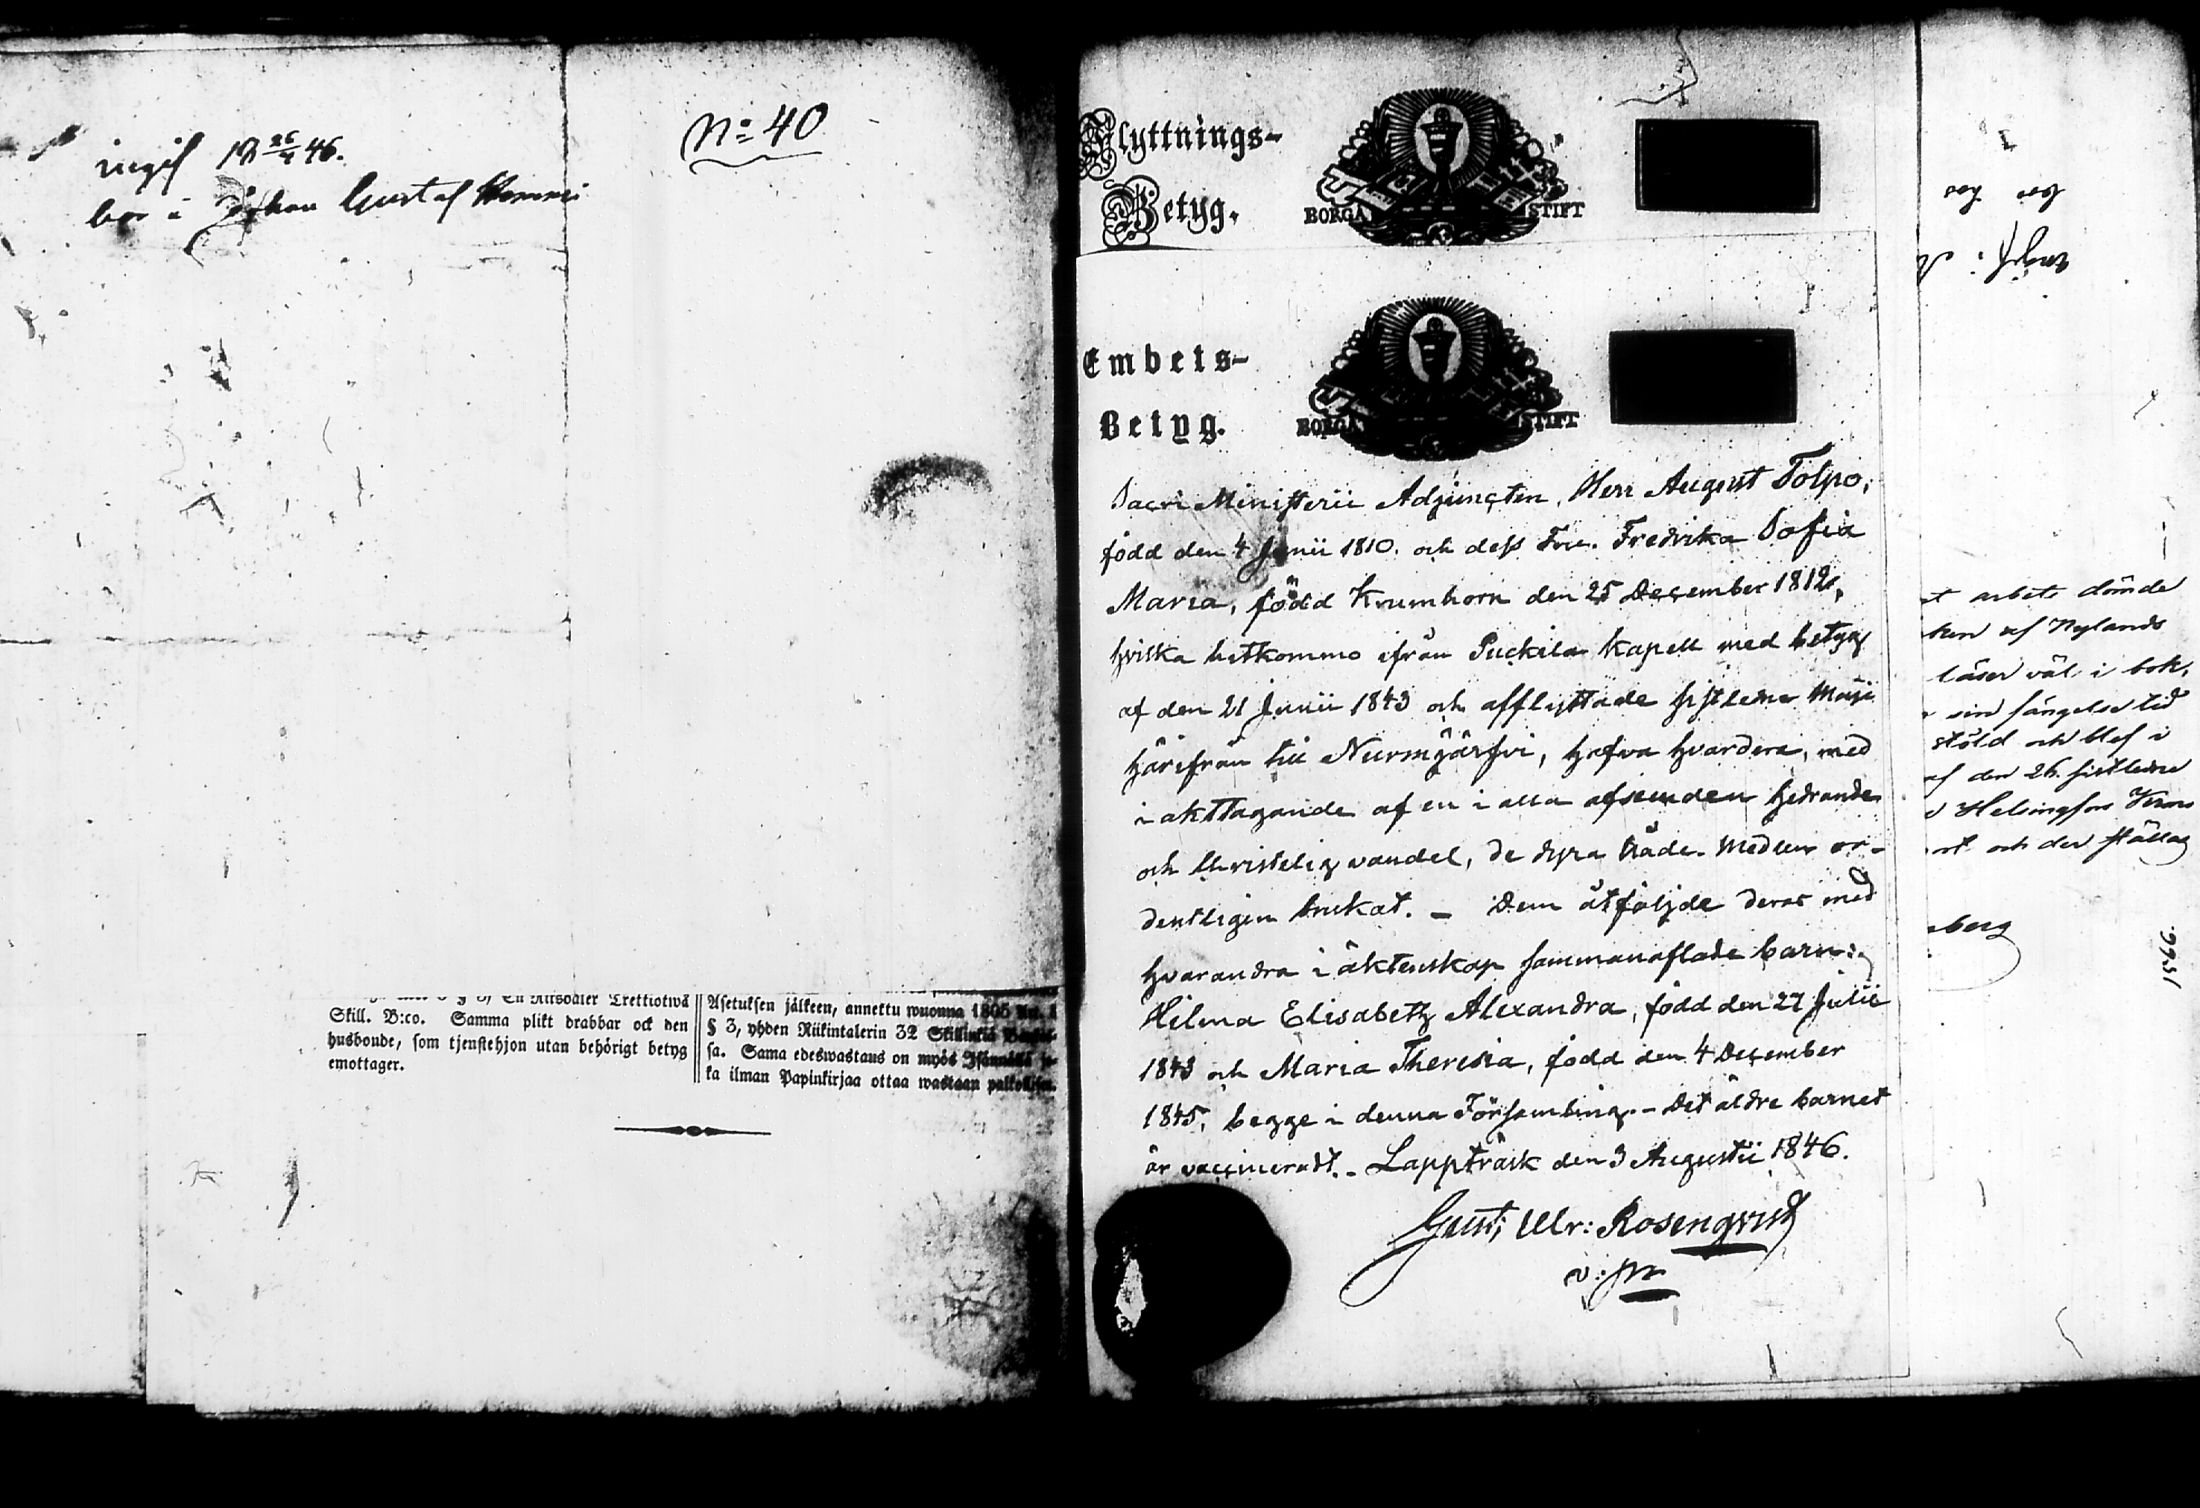 ingif 18 26/4 46.
bor i Johan Gustaf
No: 40
Skill. B:co. Samma plikt drabbar ock den
husbonde, som tjenstehjon utan behörigt betyg
emottager.
Asetuksen jälkeen, annettu wuonna 1805
§ 3, yhden Riikintalerin 32 Skillinkiä
sa. Sama edeswastaus on myös
ka ilman Papinkirjaa ottaa wastaan
Flyttnings-
Betyg.
BORGÅ STIFT
Embets-
Betyg.
BORGÅ STIFT
Sacri Ministerii Adjuncten, Herr August Tolpo,
född den 4 Junii 1810. och dess Fru. Fredrika Sofia
Maria, född Krumhorn den 25 December 1812,
hvilka hitkommo ifrån Puckila Kapell med betyg
af den 21 Junii 1843 och afflyttade sistledne Maji
härifrån till Nurmijärfvi, hafva hvardera, med
iakttagande af en i alla afseenden hedrande
och Christelig vandel, de dyra Nåde-Medlen or-
dentligen brukat. – Dem åtföljde deras med
hvarandra i äktenskap sammanaflade barn:
Hilma Elisabeth Alexandra, född den 27 Julii
1843 och Maria Theresia, född den 4 December
1845, begge i denna Församling. – Det äldre barnet
är vaccineradt. – Lappträsk den 3 Augustii 1846.
Gust: Ulr: Rosenqvist
v: p
bor hos
arbete dömde
af Nylands
läser väl i bok,
sin fängelse tid
stöld och blef i
af den 26. sistledne
Helsingfors
och der
berg